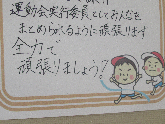 運動会実行委員としてみんなを
まとめられるように頑張ります
全力で
頑張りましょう?